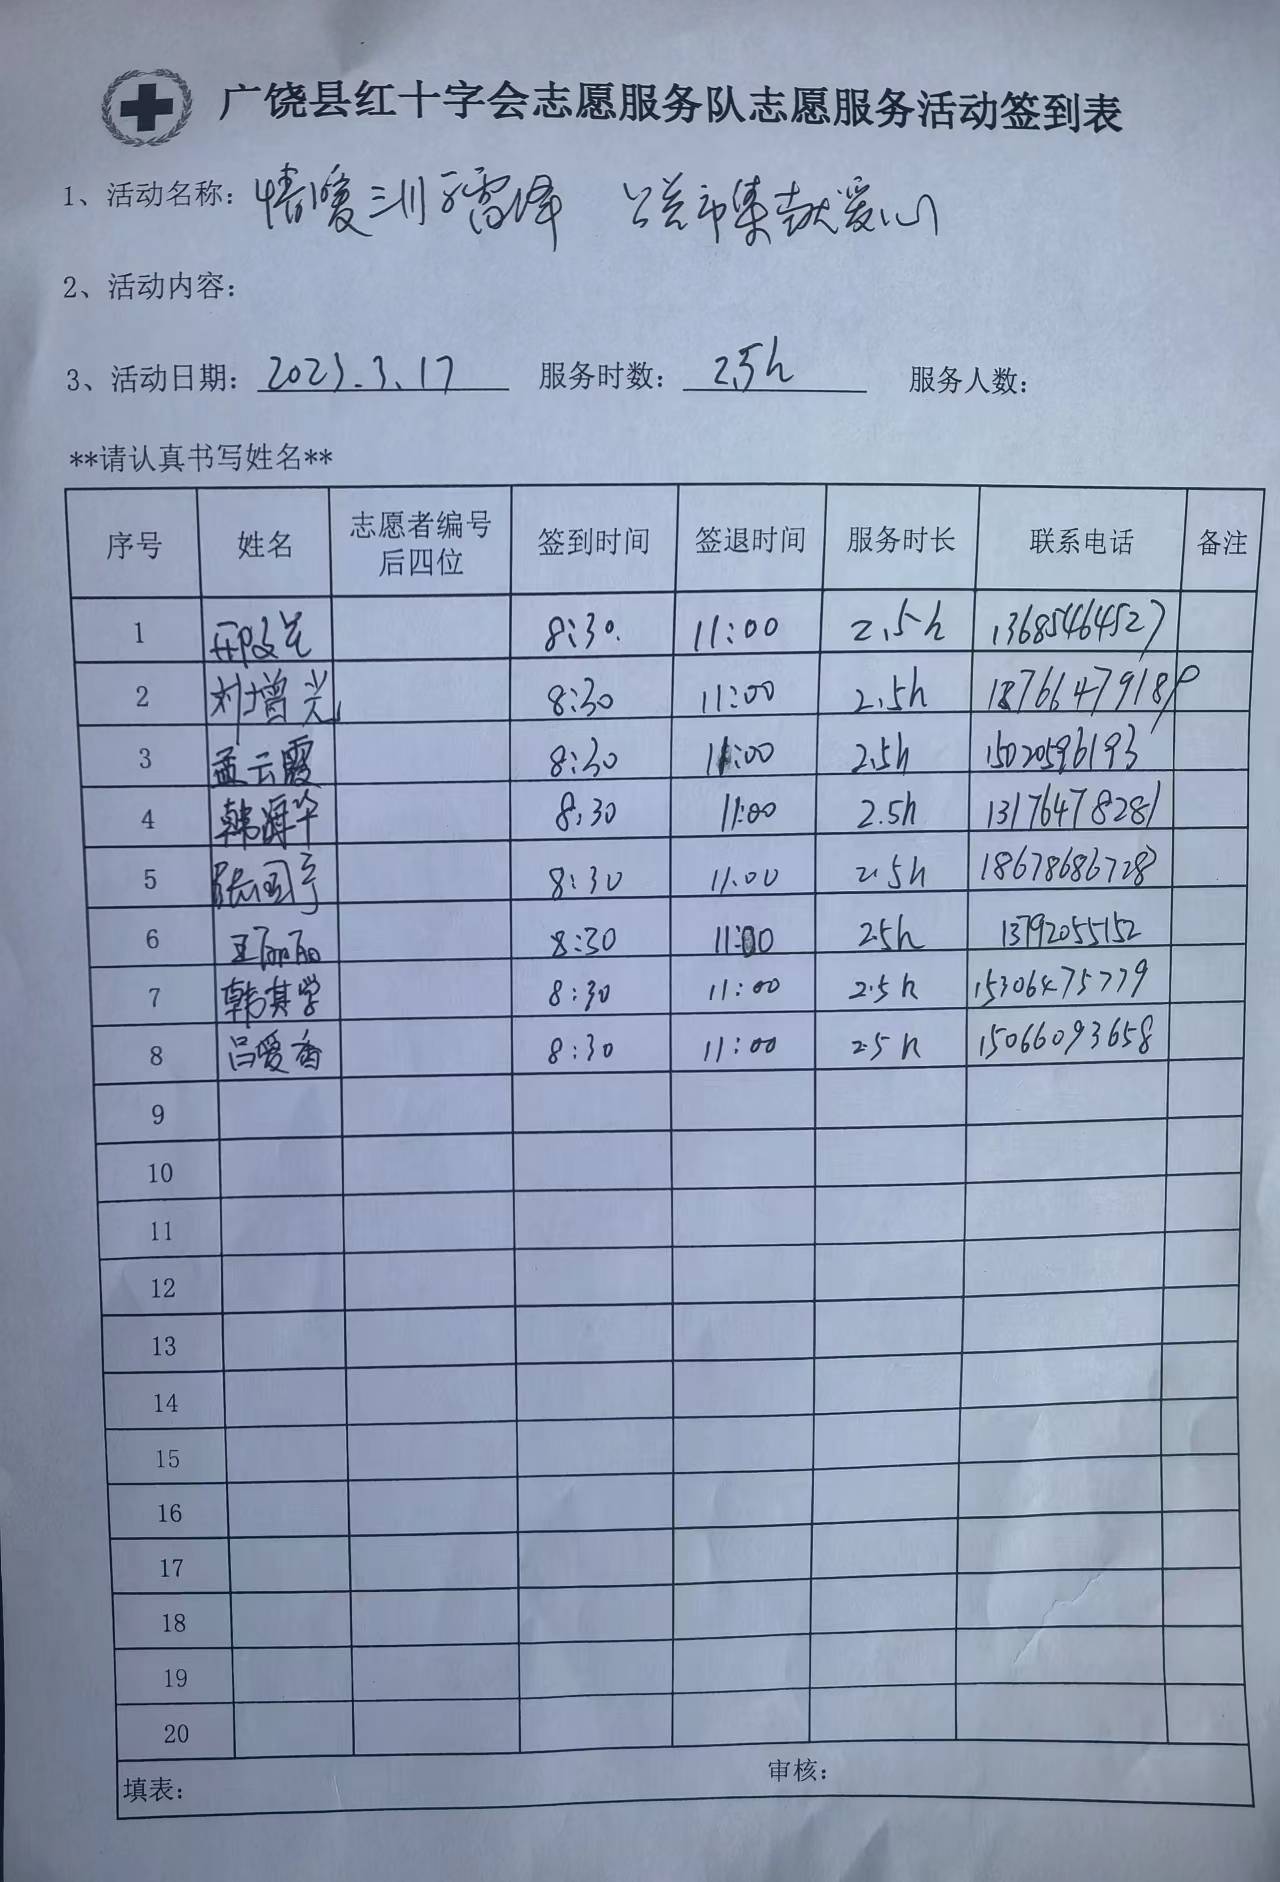 广饶县红十字会志愿服务队志愿服务活动签到表
1、活动名称：情暖三月 雷锋 公益市集献爱心
2、活动内容：
3、活动日期：2023.3.17 服务时数：2.5h 服务人数：
**请认真书写姓名**
序号 姓名 志愿者编号后四位 签到时间 签退时间 服务时长 联系电话 备注
1 8:30 11:00 2.5h 13685464527
2 刘增光 8:30 11:00 2.5h 18766479189
3 孟云霞 8:30 11:00 2.5h 15020596193
4 韩海华 8:30 11:00 2.5h 13176478281
5 张国亭 8:30 11:00 2.5h 18678686728
6 王丽丽 8:30 11:00 2.5h 13792055152
7 韩其学 8:30 11:00 2.5h 15306475779
8 吕爱香 8:30 11:00 2.5h 15066093658
9
10
11
12
13
14
15
16
17
18
19
20
填表： 审核：